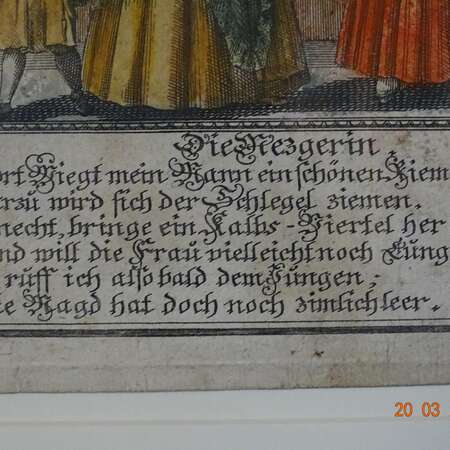 Die Mezgerin.
ort Wiegt mein Mann ein schönen Riem
rzu wird sich der Schlegel ziemen.
necht, bringe ein Kalbs-Viertel her
nd will die Frau vielleicht noch Lung
ruff ich alsobald dem Jungen,
ie Magd hat doch noch zimlich leer.
20 03